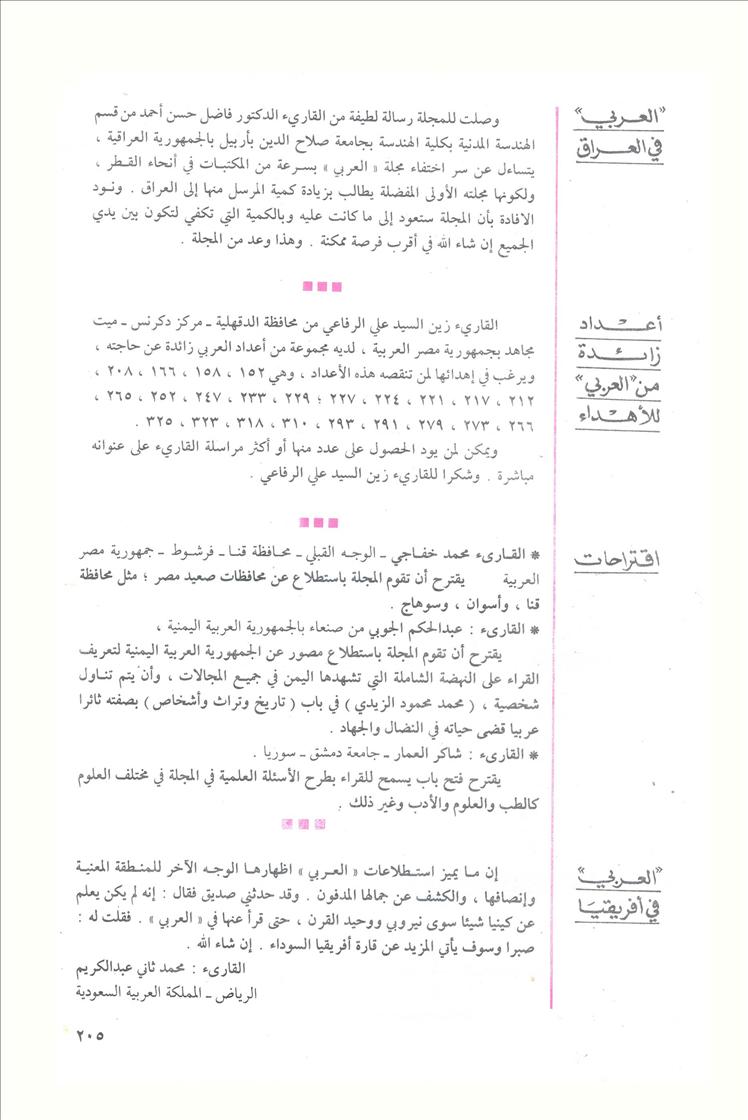 «العربي»
في العراق
وصلت للمجلة رسالة لطيفة من القاريء الدكتور فاضل حسن أحمد من قسم
الهندسة المدنية بكلية الهندسة بجامعة صلاح الدين بأربيل بالجمهورية العراقية ،
يتساءل عن سر اختفاء مجلة « العربي » بسرعة من المكتبات في أنحاء القطر ،
ولكونها مجلته الأولى المفضلة يطالب بزيادة كمية المرسل منها إلى العراق . ونود
الافادة بأن المجلة ستعود إلى ما كانت عليه وبالكمية التي تكفي لتكون بين يدي
الجميع إن شاء الله في أقرب فرصة ممكنة . وهذا وعد من المجلة .
أعداد
زائدة
من «العربي»
للأهداء
القاريء زين السيد علي الرفاعي من محافظة الدقهلية ـ مركز دكرنس ـ ميت
مجاهد بجمهورية مصر العربية ، لديه مجموعة من أعداد العربي زائدة عن حاجته ،
ويرغب في إهدائها لمن تنقصه هذه الأعداد ، وهي ١٥٢ ، ١٥٨ ، ١٦٦ ، ٢٠٨ ،
٢١٢ ، ٢١٧ ، ٢٢١ ، ٢٢٤ ، ٢٢٧ ؛ ٢٢٩ ، ٢٣٣ ، ٢٤٧ ، ٢٥٢ ، ٢٦٥ ،
٢٦٦ ، ٢٧٣ ، ٢٧٩ ، ٢٩١ ، ٢٩٣ ، ٣١٠ ، ٣١٨ ، ٣٢٣ ، ٣٢٥ .
ويمكن لمن يود الحصول على عدد منها أو أكثر مراسلة القاريء على عنوانه
مباشرة . وشكرا للقاريء زين السيد علي الرفاعي .
اقتراحات
* القارىء محمد خفاجي ـ الوجه القبلي ـ محافظة قنا ـ فرشوط ـ جمهورية مصر
العربية يقترح أن تقوم المجلة باستطلاع عن محافظات صعيد مصر ؛ مثل محافظة
قنا ، وأسوان ، وسوهاج .
* القارىء : عبدالحكم الجوبي من صنعاء بالجمهورية العربية اليمنية ،
يقترح أن تقوم المجلة باستطلاع مصور عن الجمهورية العربية اليمنية لتعريف
القراء على النهضة الشاملة التي تشهدها اليمن في جميع المجالات ، وأن يتم تناول
شخصية ، ( محمد محمود الزيدي ) في باب ( تاريخ وتراث وأشخاص ) بصفته ثائرا
عربيا قضى حياته في النضال والجهاد .
* القارىء : شاكر العمار ـ جامعة دمشق ـ سوريا .
يقترح فتح باب يسمح للقراء بطرح الأسئلة العلمية في المجلة في مختلف العلوم
كالطب والعلوم والأدب وغير ذلك .
«العربي»
في أفريقيا
إن ما يميز استطلاعات « العربي » اظهارها الوجه الآخر للمنطقة المعنية
وإنصافها ، والكشف عن جمالها المدفون . وقد حدثني صديق فقال : إنه لم يكن يعلم
عن كينيا شيئا سوى نيروبي ووحيد القرن ، حتى قرأ عنها في « العربي » . فقلت له :
صبرا وسوف يأتي المزيد عن قارة أفريقيا السوداء . إن شاء الله .
القارىء : محمد ثاني عبدالكريم
الرياض ـ المملكة العربية السعودية
٢٠٥